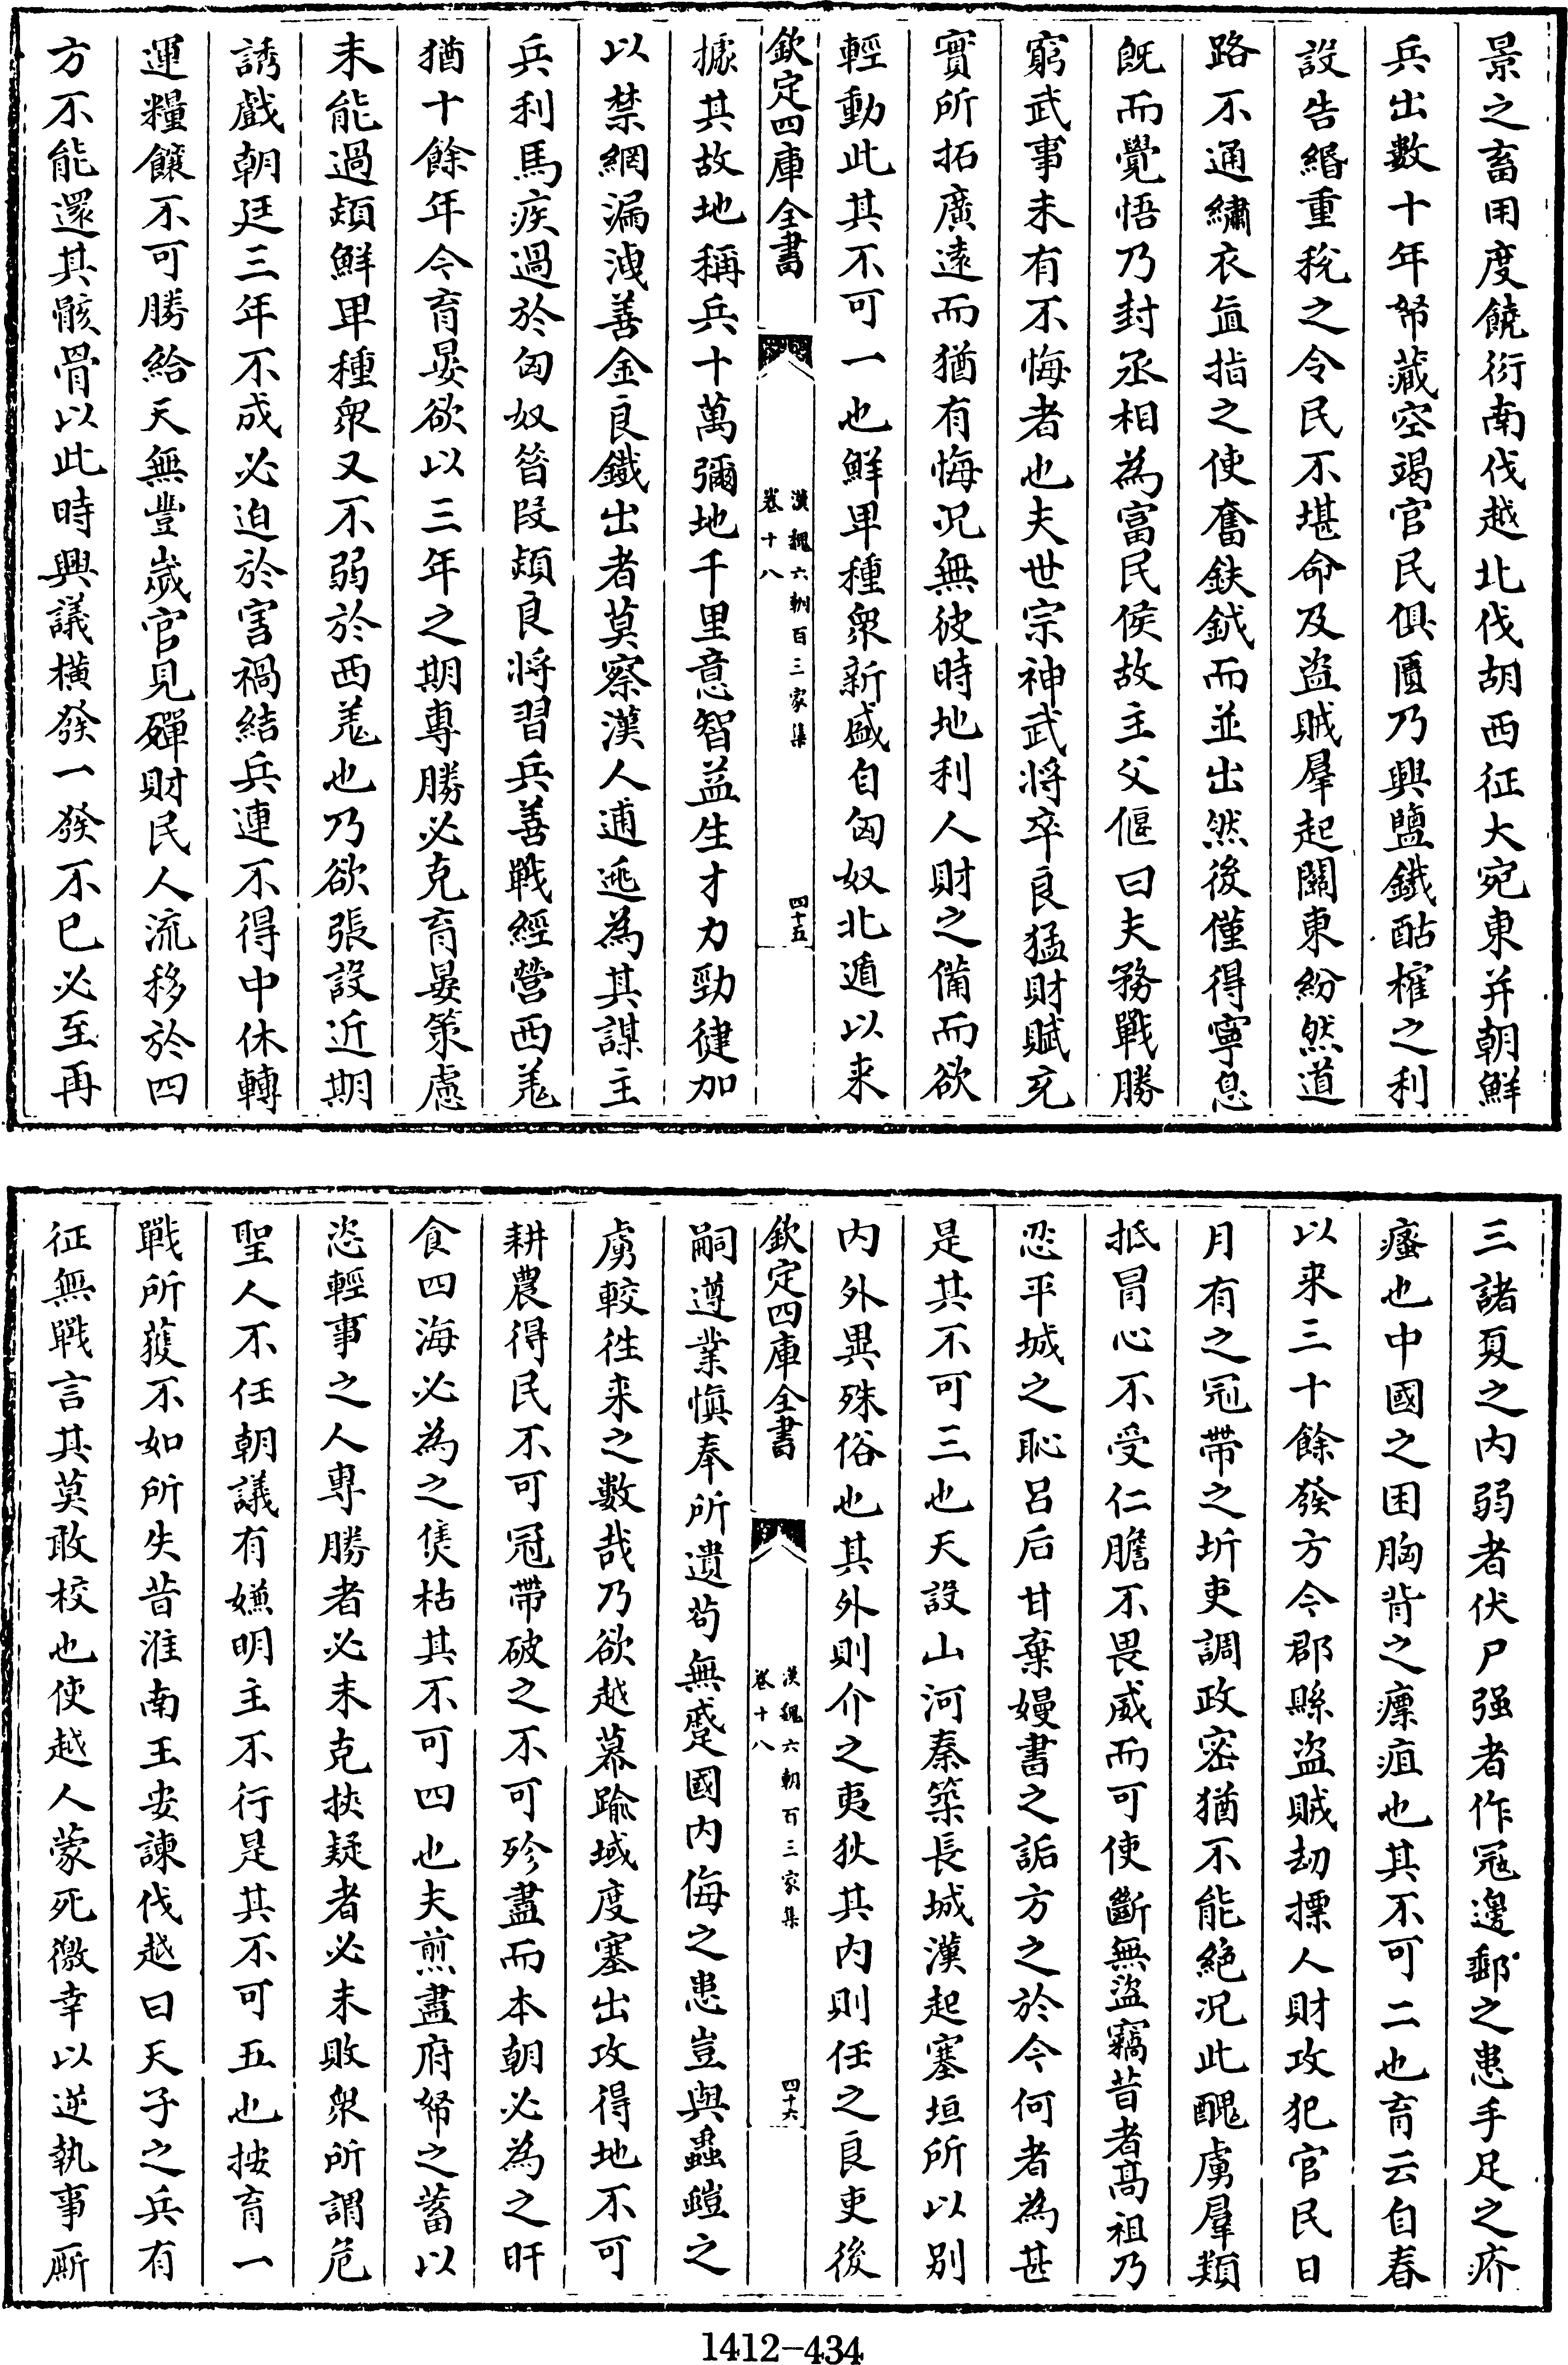 景之畜用度饒衍南伐越北伐胡西征大宛東并朝鮮
兵出數十年帑藏空竭官民俱匱乃興鹽鐵酤榷之利
設告緡重稅之令民不堪命及盜賊羣起關東紛然道
路不通繡衣直指之使奮鈇鉞而並出然後僅得寧息
既而覺悟乃封丞相為富民侯故主父偃曰夫務戰勝
窮武事未有不悔者也夫世宗神武將卒良猛財賦充
實所拓廣遠而猶有悔况無彼時地利人財之備而欲
輕動此其不可一也鮮卑種衆新盛自匈奴北遁以来
欽定四庫全書
漢魏六朝百三家集
卷十八
四十五
據其故地稱兵十萬彌地千里意智益生才力勁徤加
以禁網漏洩善金良鐵出者莫察漢人逋逃為其謀主
兵利馬疾過於匈奴昔段熲良將習兵善戰經營西羗
猶十餘年今育晏欲以三年之期專勝必克育晏策慮
未能過熲鮮卑種衆又不弱於西羗也乃欲張設近期
誘戲朝廷三年不成必迫於害禍結兵連不得中休轉
運糧饟不可勝給天無豐嵗官見殫財民人流移於四
方不能還其骸骨以此時興議横發一發不已必至再
三諸夏之内弱者伏尸强者作冦邊郵之患手足之疥
瘙也中國之困胸背之瘭疽也其不可二也育云自春
以来三十餘發方今郡縣盜賊刧摽人財攻犯官民日
月有之冠帶之圻吏調政密猶不能絶况此醜虜羣類
抵冒心不受仁膽不畏威而可使斷無盜竊昔者髙祖乃
忍平城之恥呂后甘棄嫚書之詬方之於今何者為甚
是其不可三也天設山河秦築長城漢起塞垣所以别
内外異殊俗也其外則介之夷狄其内則任之良吏後
欽定四庫全書
漢魏六朝百三家集
卷十八
四十六
嗣遵業慎奉所遺茍無蹙國内侮之患豈與蟲螘之
虜較徃来之數哉乃欲越幕踰域度塞出攻得地不可
耕農得民不可冠帶破之不可殄盡而本朝必為之旰
食四海必為之焦枯其不可四也夫煎盡府帑之蓄以
恣輕事之人專勝者必未克挾疑者必未敗衆所謂危
聖人不任朝議有嫌明主不行是其不可五也按育一
戰所獲不如所失昔淮南王安諫伐越曰天子之兵有
征無戰言其莫敢校也使越人蒙死徼幸以逆執事厮
1412-434